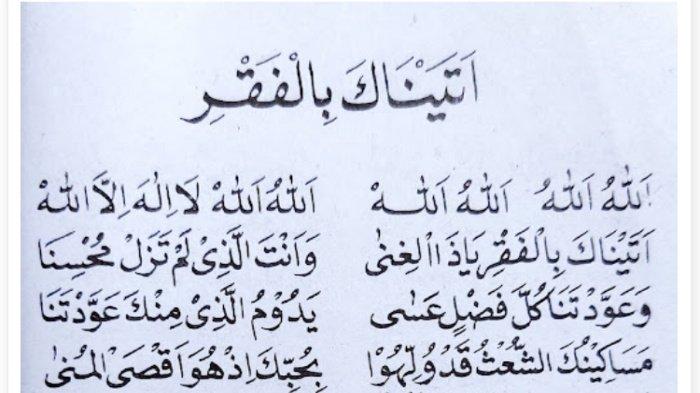 اَتَيْنَاكَ بِالْفَقْرِ
اَللهُ اَللهُ اَللهُ اَللهْ اَللهُ اَللهُ لَا اِلٰهَ اِلَّا اللهْ
اَتَيْنَاكَ بِالْفَقْرِ يَاذَا الْغِنٰى وَاَنْتَ الَّذِىْ لَمْ تَزَلْ مُحْسِنَا
وَعَوَّدْتَنَا كُلَّ فَضْلٍ عَسٰى يَدُوْمُ الَّذِىْ مِنْكَ عَوَّدْتَنَا
مَسَاكِيْنُكَ الشُّعْثُ قَدْ وُلِّهُوْا بِحُبِّكَ اِذْ هُوَ اَقْصَى الْمُنٰى